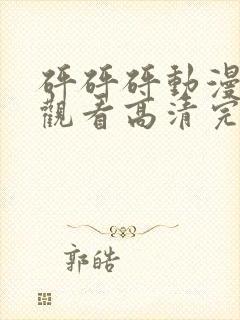 砰砰砰動漫
觀看高清完
郭皓